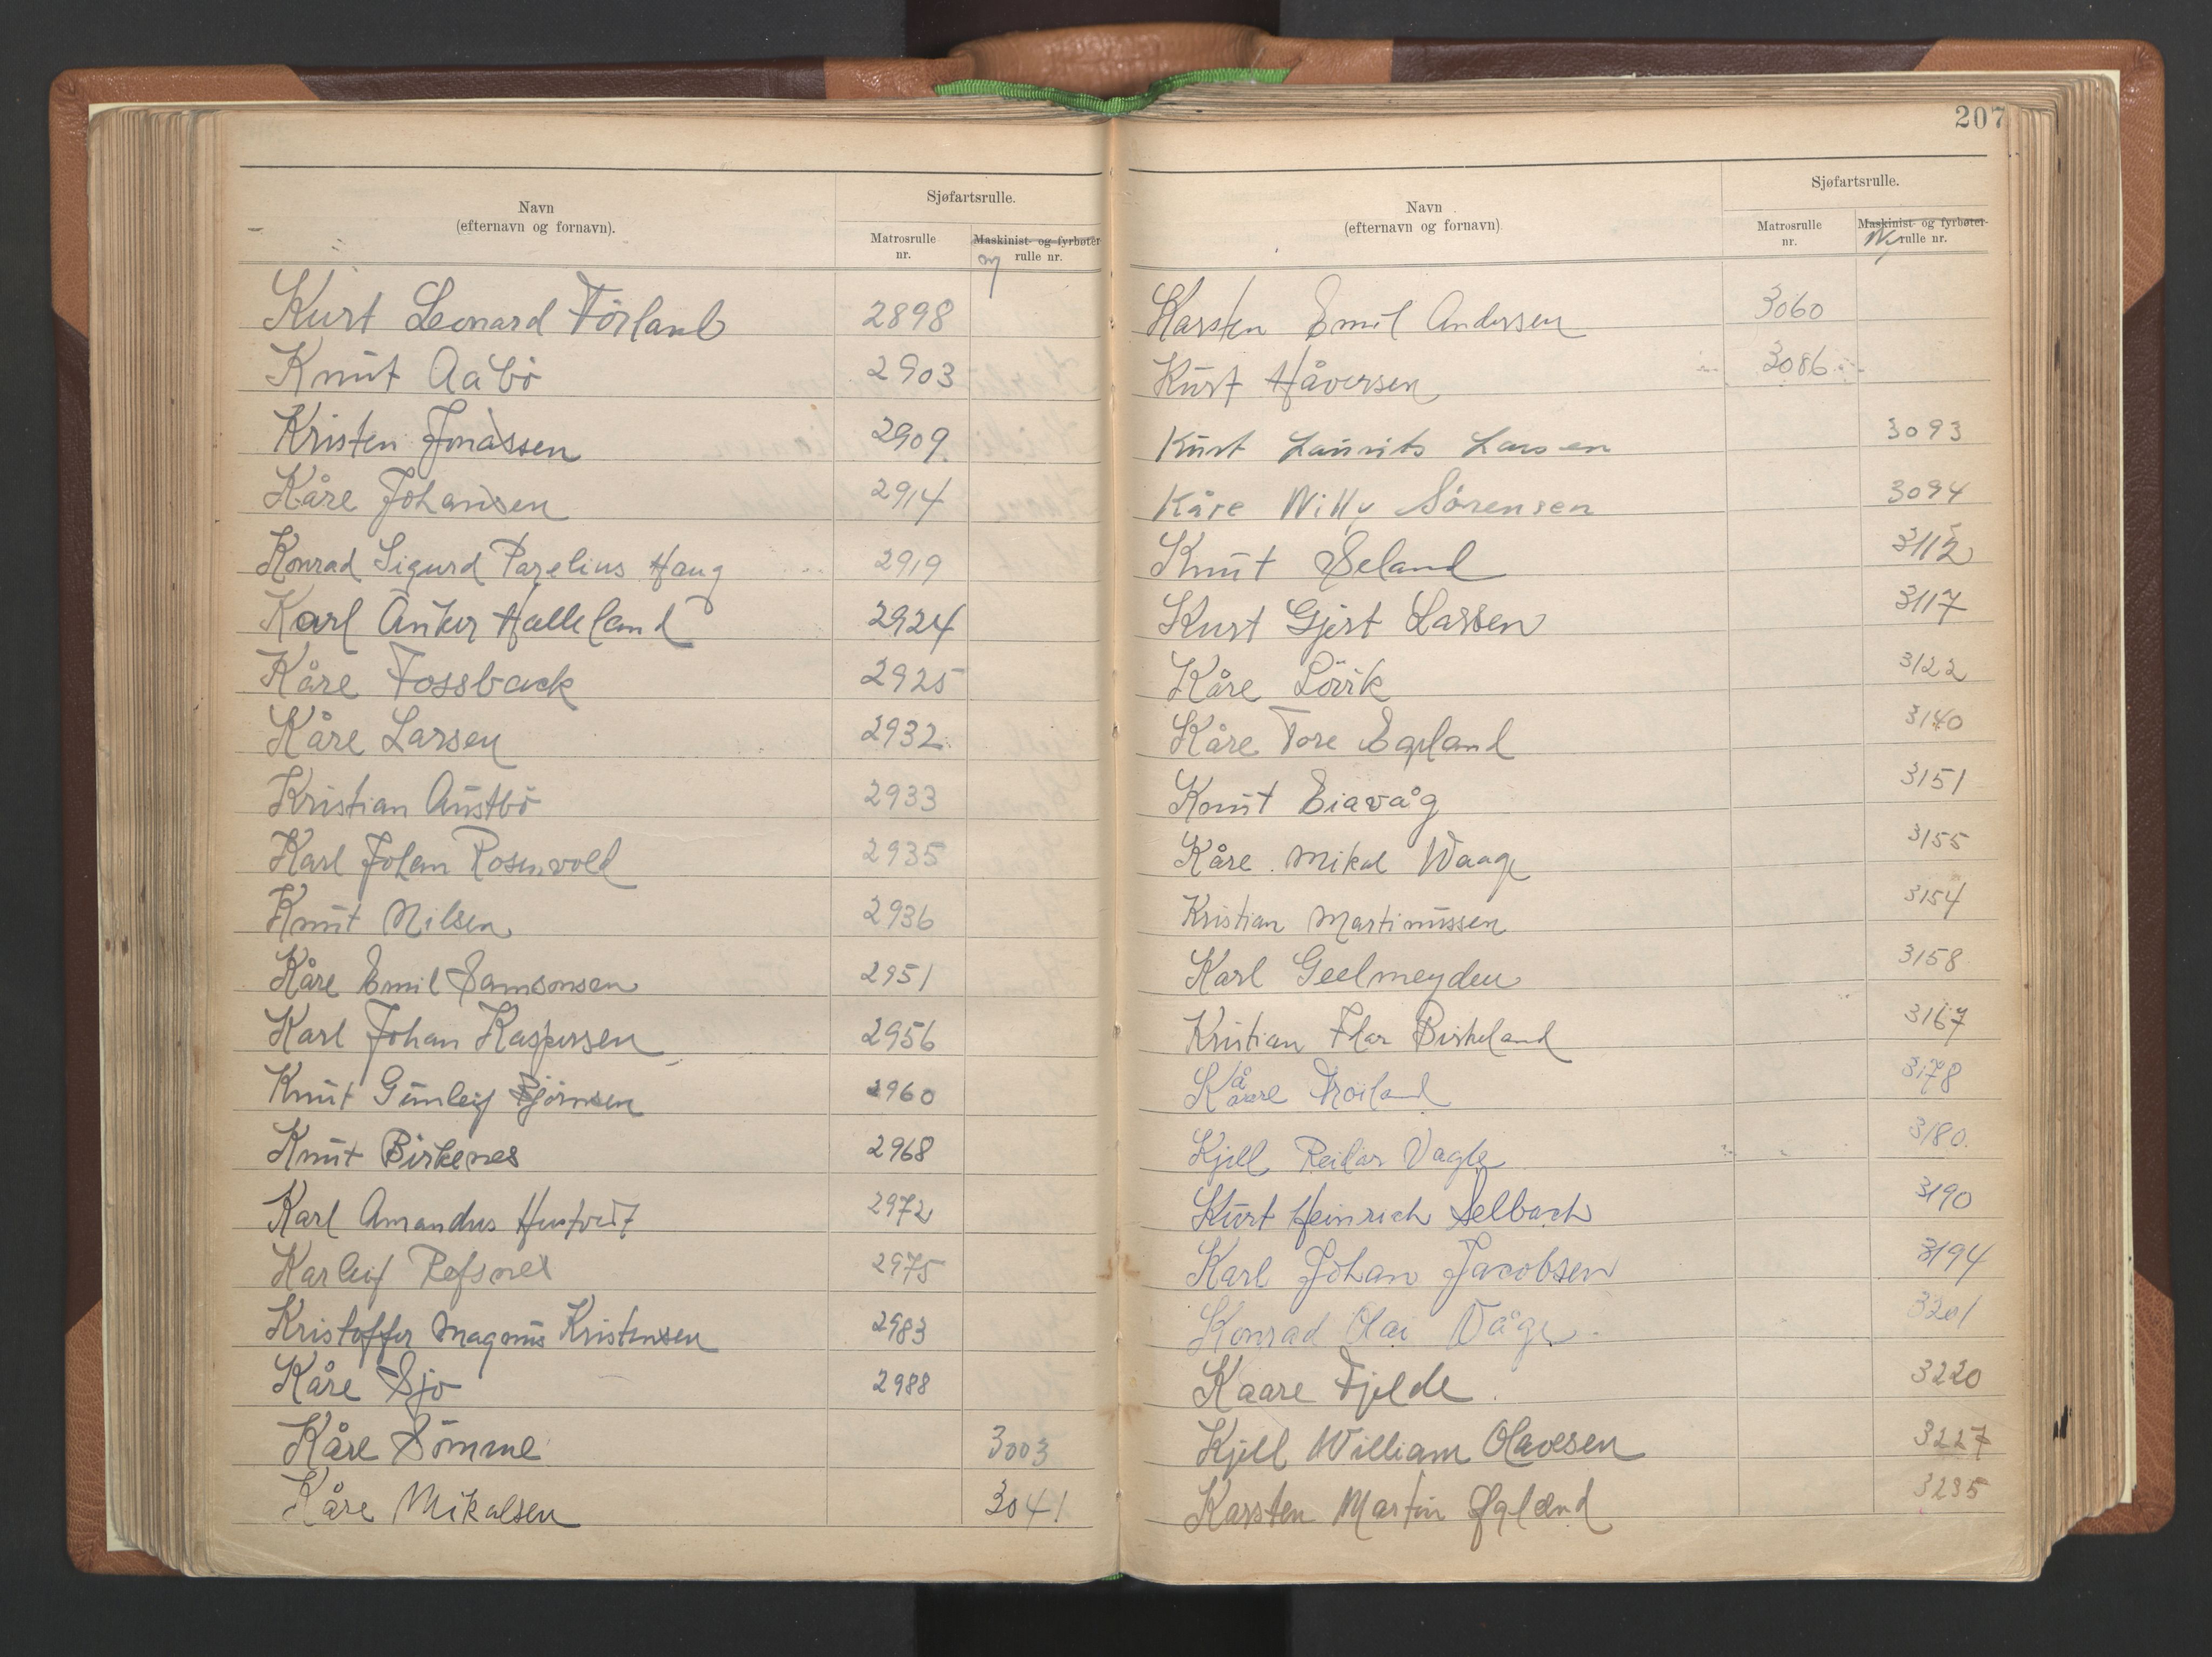 Navn
(efternavn og fornavn).
Sjøfartsrulle.
Matrosrulle
nr.
Maskinist- og fyrbøter-
rulle nr.
Kurt LeonardFörland 2898
Knut Aabö 2903
Kristen Jonassen 2909
Kåre Johansen 2914
Konrad Sigurd Parelius Haug 2919
Karl Anker Halleland 2924
Kåre Fossback 2925
Kåre Larsen 2932
Kristian Austbö 2933
Karl Johan Rosenvold 2935
Knut Nilsen 2936
Kåre Emil Samsonsen 2951
Karl Johan Kaspersen 2956
Knut Gunleif Bjørnsen 2960
Knut Birkenes 2968
Karl Amandus Hustveit 2972
Karleif Refsnes 2975
Kristoffer Magnus Kristensen 2983
Kåre Sjo 2988
Kåre Sömme 3003
Kåre Mikalsen 3041
207
Navn
(efternavn og fornavn)
Sjøfartsrulle.
Matrosrulle
nr.
Maskinist- og fyrbøter-
Ny rulle nr.
Karsten Emil Andersen 3060
Kurt Håversen 3086
Kurt Laurits Larsen 3093
Kåre Willy Sörensen 3094
Knut Seland 3112
Kurt Gjert Larsen 3117
Kåre Lövik 3122
Kåre Tore Egeland 3140
Knut Eiavåg 3151
Kåre Mikal Waage 3155
Kristian Martinussen 3154
Karl Geelmeyden 3158
Kristian Birkeland 3167
Kåare Tröiland 3178
Kjell Reidar Vagle 3180.
Kurt Heinrich Selbach 3190
Karl Johan Jacobsen 3194
Konrad Olai Våge 3201
Kaare Fjelde 3220
Kjell William Olavesen 3227
Karsten Martin Øgland 3235